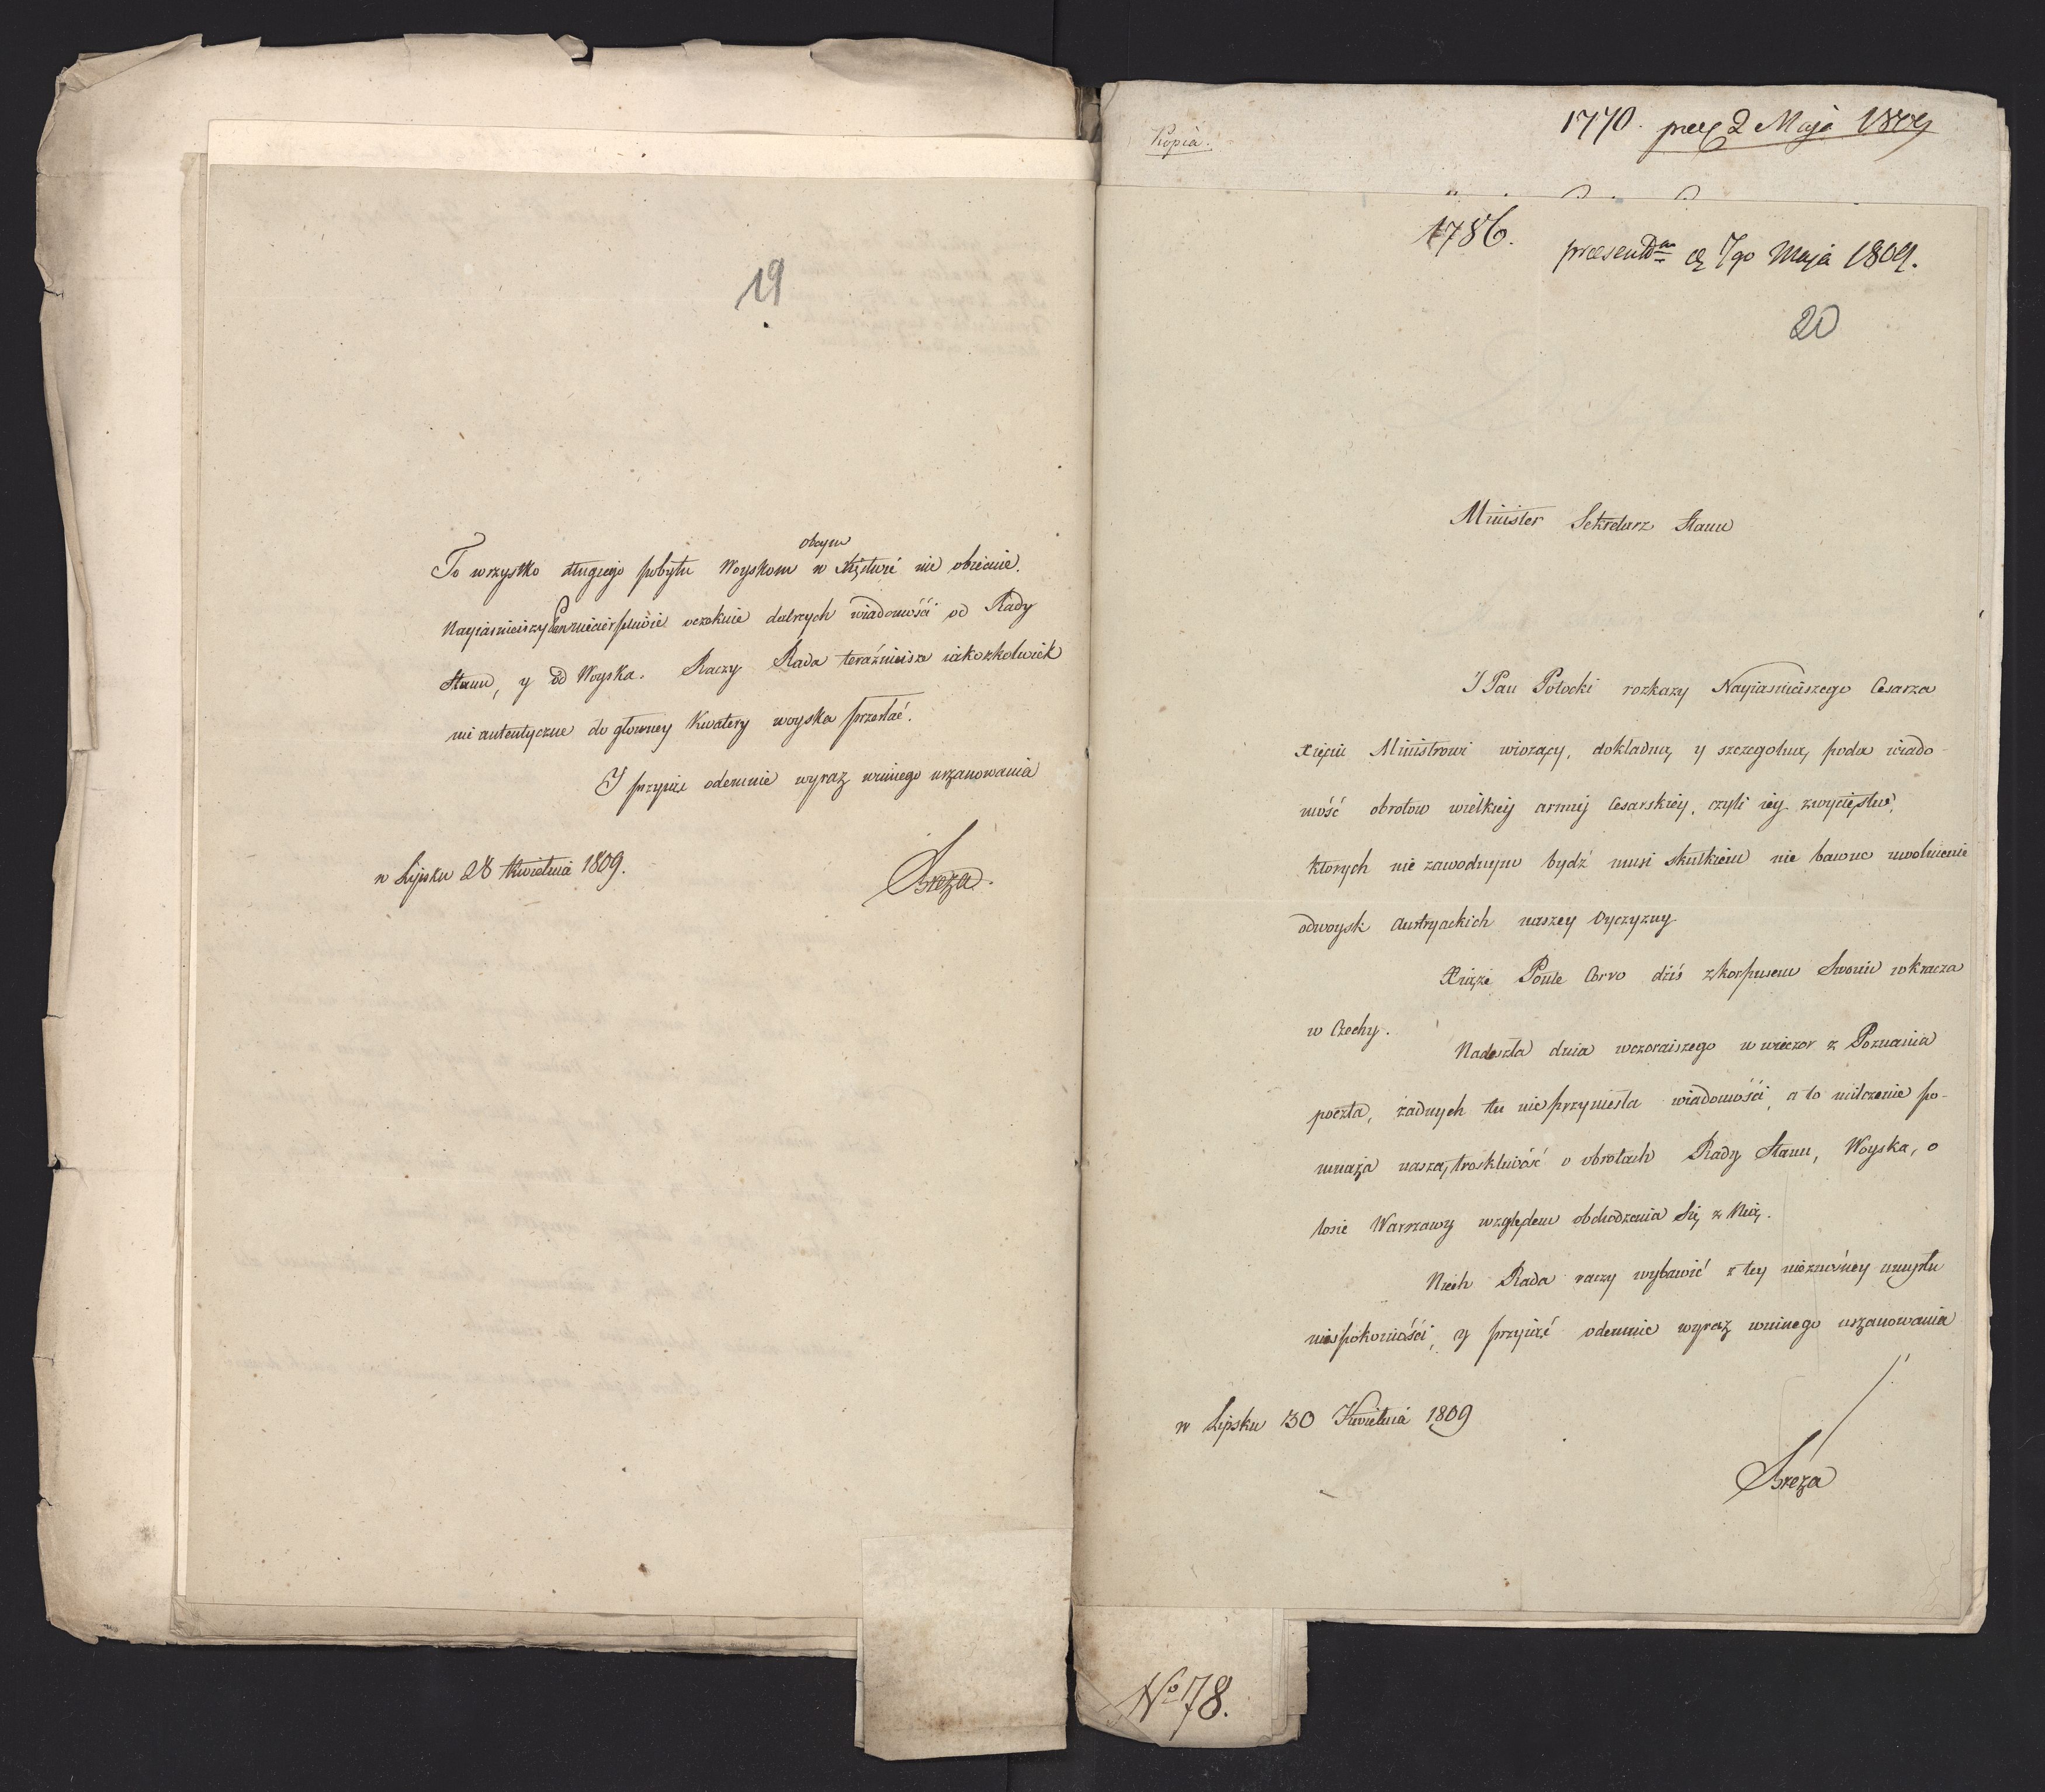 19
obcym
To wszystko długiego pobytu Woyskom w Xięstwie nie obiecuie.
Nayiaśnieiszy Pan niecierpliwie oczekuie dalszych wiadomości od Rady
Stanu, y od Woyska. Raczy Rada teraźnieisze iakożkolwiek
nie autentyczne do głowney Kwatery woyska przesłać.
I przyiąć odemnie wyraz winnego uszanowania
w Lipsku 28 Kwietnia 1809.
Breza.
Kopia.
1770. 2 Maja 1809
1786.
praesentm 7go Maja 1809.
20
Minister Sekretarz Stanu
J Pan Potocki rozkazy Nayiaśnieiszego Cesarza
Xięciu Ministrowi wiozący, dokładną y szczegolną poda wiado-
mość obrotow wielkiey armij Cesarskiey, czyli iey zwycięstw,
ktorych nie zawodnym bydź musi skutkiem nie bawne uwolnienie
od woysk Austryackich naszey Oyczyzny
Xiąże Ponte Corvo dziś z korpusem Swoim wkracza
w Czechy.
Nadeszła dnia wczoraiszego w wieczor z Poznania
poczta, żadnych tu nie przyniesła wiadomości, a to milczenie po-
mnaża naszą troskliwość o obrotach Rady Stanu, Woyska, o
losie Warszawy względem obchodzenia Się z Nią.
Niech Rada raczy wybawić z tey nieznośney umysłu
niespokoyności, y przyiąć odemnie wyraz winnego uszanowania
w Lipsku 30 Kwietnia 1809
Breza
No 78.